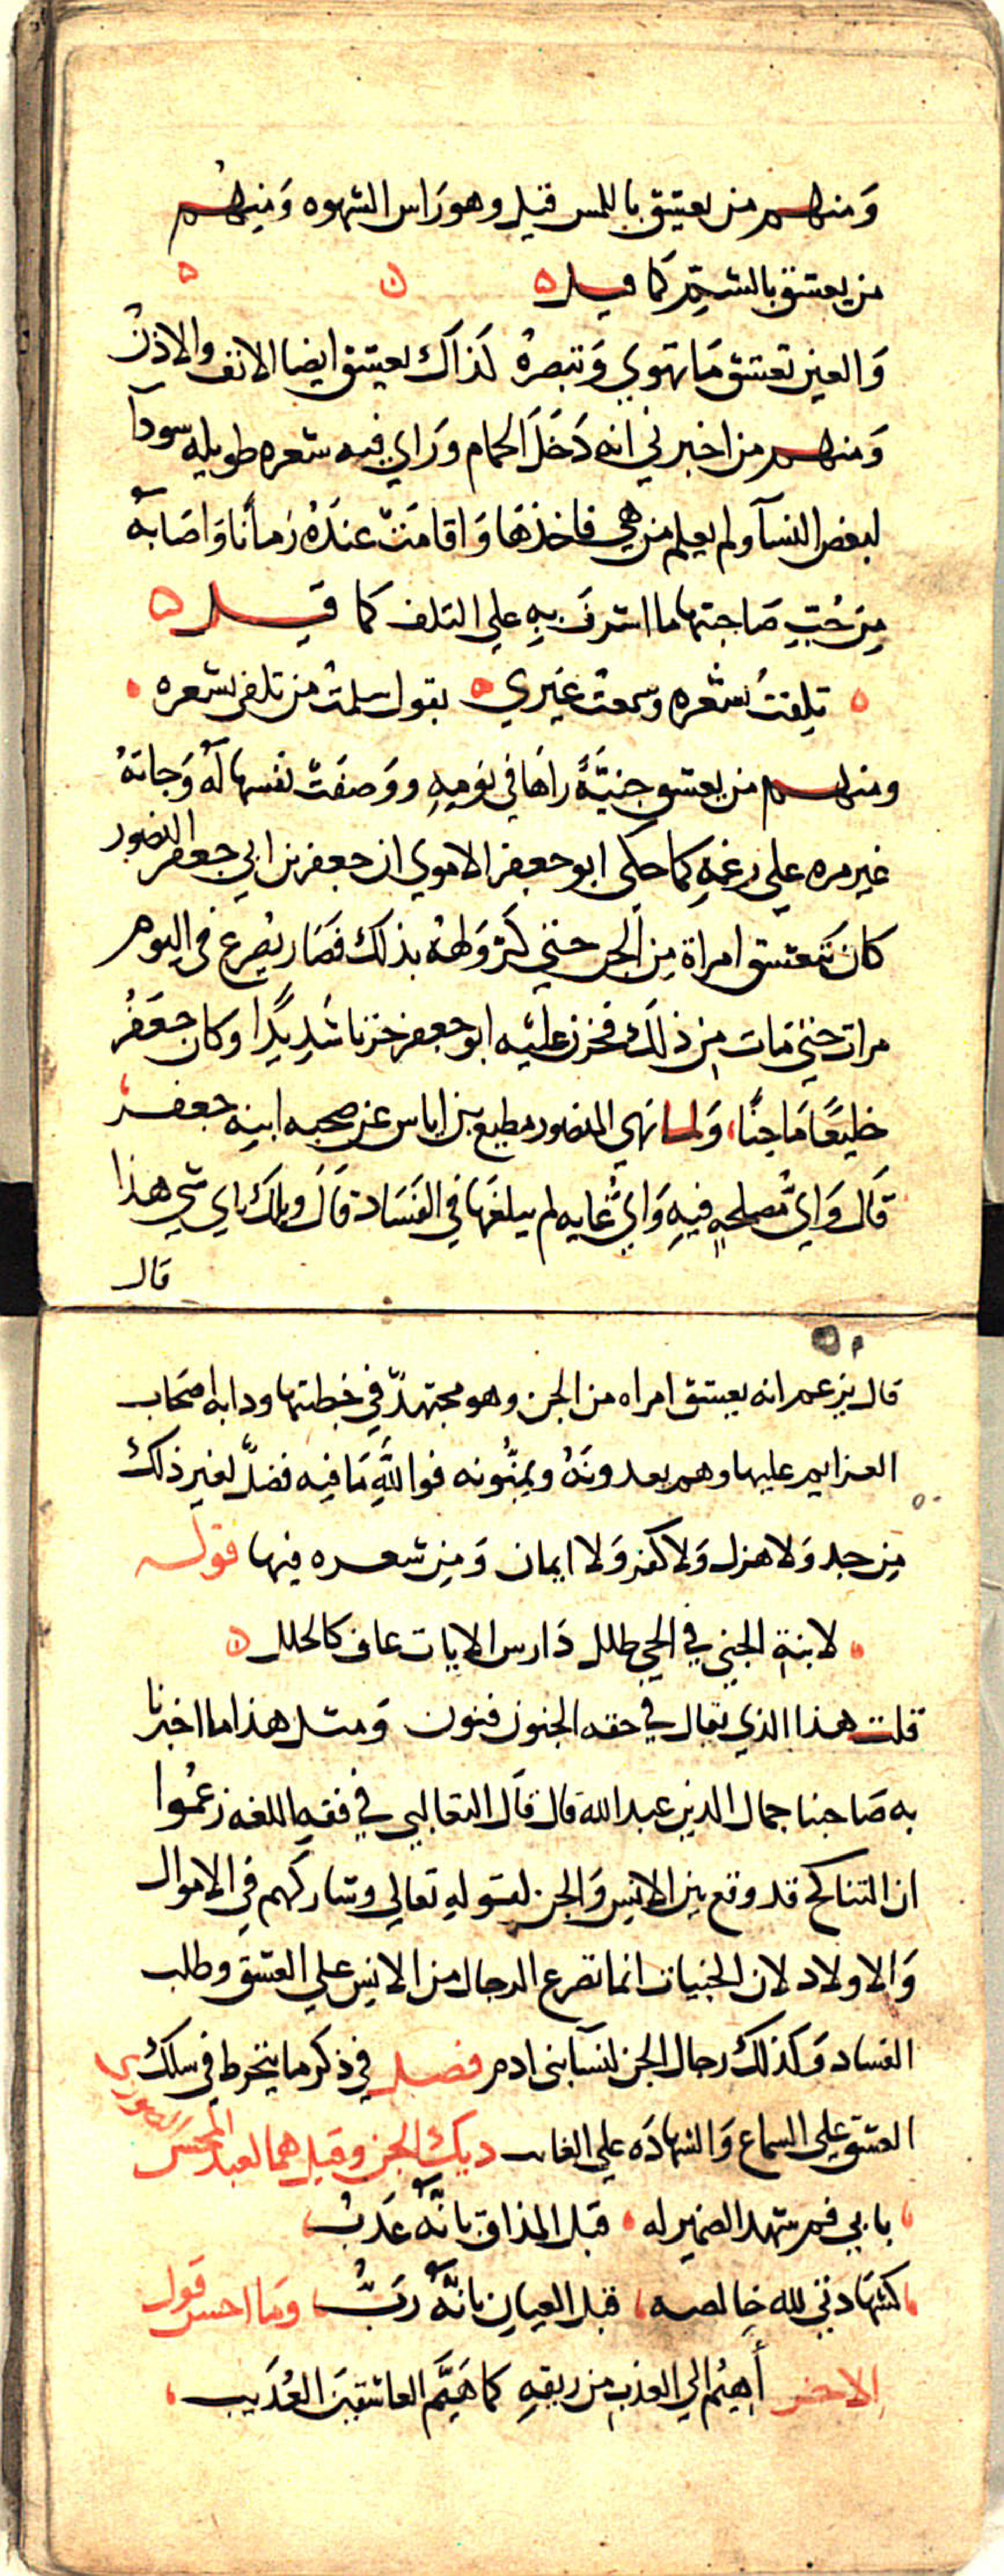 وَمنهم من يعشق باللمس قيل وهو رَاس الشهوه وَمنهُم
من يعشق بالشم كَما قيل
وَالعين تعشق مَا تهوي وَتبصرهُ كَذاكَ يعشق ايضا الانف والاذنُ
وَمنهم من اخبرني انه دَخَلَ الحمام وَراي فيه شعره طويله سودآ
لبعض النسآ ولم يعلم من هي فاخذهَا وَاقامَتْ عندَهُ زماناً وَاصَابهُ
مِن حُبِّ صَاحبتها ما اشرفَ بِهِ علي التلف كما قيل
تلِفتُ بشعره وسمعتُ غيري يقول سلمتُ من تلفي بشعره
ومنهم من يعشق جنيَّةً رآهَا في نومِهِ ووَصفَتْ نفسها لهُ وَجاتهُ
غير مره علي رغمِهِ كما حكي ابو جعفر الاموي ان جعفر بن ابي جعفر المنصور
كانَ يَتعشق امراة مِن الجن حتي كَثر وَلهُه بذلك فصَار يُصرع في اليوم
مرات حتي مَات مِن ذلكَ فحزن عليه ابو جعفر حزنا شَدِيدًا وكان جَعفرُ
خليعًا مَاجنًا وَلما نهي المنصور مطيع بن اياس عن صحبه ابنِه جعفر
قَال وَايُّ مُصلحهٍ فيهِ وَايُّ غايه لم يبلغهَا في الفَسَاد قَالَ ويلكَ باي شي هذا
قال
قال يزعم انه يعشق امراه من الجن وهو مجتهدٌ في خطبتها ودابه اصحَاب
العزايم عليها وهم يعدونَهُ ويمنُّونه فواللَّهِ مَا فيه فضلٌ لغير ذلك
مِن جد وَلا هزل وَلا كفر وَلا ايمان وَمِن شعره فيها قوله
لابنة الجني في الحي طلل دَارس الايات عاف كالخلل
قلت هذا الذي يقال في حقه الجنون فنون وَمثل هذا ما اخبرنا
به صَاحبنا جمال الدين عبد الله قال قَال الثعالبي في فقه اللغه زعمُوا
ان التناكح قد وقع بين الانِس وَالجن لقولهِ تعالي وشاركهم في الاموال
وَالاولاد لان الجنيات انما تصرع الرجال من الانِس علي العشق وطلب
الفساد وَكذلكَ رجال الجن لنسآ بني ادم فصل في ذكر ما ينخرط في سلك
العشق علي السماع وَالشهادَه علي الغائب ديك الجن وقيل هما لعبد المحسن الصوري
بابي فم شهد الضمير له قبل المذاق بانَّهُ عَذبُ
كشهَادتي لله خالصه قبل العيان بانَّهُ رَبُّ وَما احسن قول
الاخر أَهِيُم الي العذب مِن ريقهِ كما هَيَّم العاشقينَ العُذَيب